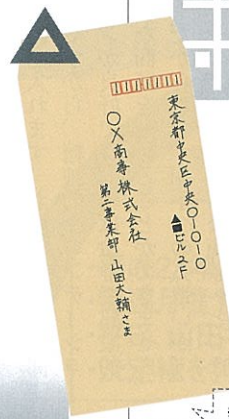 東京都中央区中央〇-〇-〇
▲■ビル2F
〇×商事株式会社
第二事業部 山田大輔さま